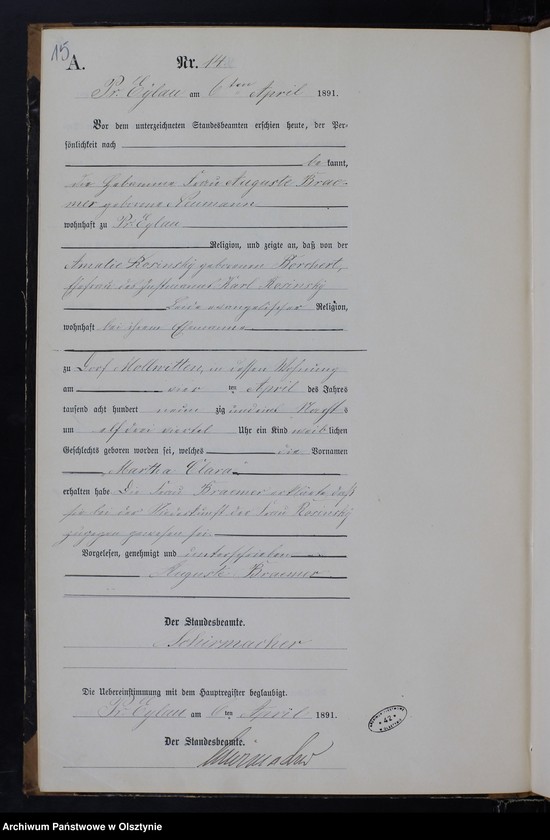 15
A. Nr. 142
Pr. Eylau am 6ten April 1891.
Vor dem unterzeichneten Standesbeamten erschien heute, der Per-
sönlichkeit nach
be kannt,
die Hebamme Frau Auguste Brae-
mer geborene Neumann
wohnhaft zu Pr. Eylau
Religion, und zeigte an, daß von der
Amalie Rosinsky geborenen Borchert,
Ehefrau des Instmanns Karl Rosinsky
Beide evangelischer Religion,
wohnhaft bei ihrem Ehemanne
zu Dorf Mollwitten, in dessen Wohnung
am vier ten April des Jahres
tausend acht hundert neun zig und eins Nachts
um elf drei viertel Uhr ein Kind weiblichen
Geschlechts geboren worden sei, welches die Vornamen
Martha Clara
erhalten habe Die Frau Braemer erklärte daß
sie bei der Niederkunft der Frau Rosinsky
zugegen gewesen sei.
Vorgelesen, genehmigt und unterschrieben
Auguste Braemer
Der Standesbeamte.
Schirmacher
Die Uebereinstimmung mit dem Hauptregister beglaubigt.
Pr. Eylau am 6ten April 1891.
Der Standesbeamte.
Schirmacher
42
Archiwum Państwowe w Olsztynie